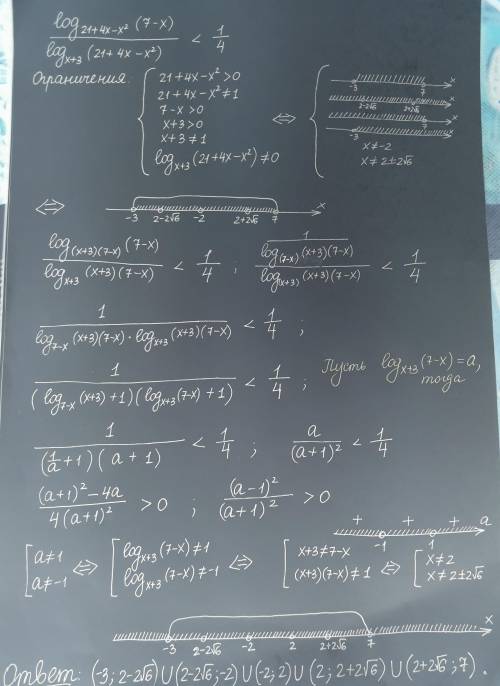 log_{21+4x-x²}(7-x) / log_{x+3}(21+4x-x²) < 1/4
Ограничения: { 21+4x-x²>0
21+4x-x²≠1
7-x>0
x+3>0
x+3≠1
log_{x+3}(21+4x-x²)≠0
⇔ { -3 7 x
2-2√6 2+2√6 x
7 x
-3 x
x≠-2
x≠2±2√6
⇔ -3 2-2√6 -2 2+2√6 7 x
log_{(x+3)(7-x)}(7-x) / log_{x+3}(x+3)(7-x) < 1/4 ; (1 / log_{(7-x)}(x+3)(7-x)) / log_{(x+3)}(x+3)(7-x) < 1/4
1 / (log_{7-x}(x+3)(7-x) · log_{x+3}(x+3)(7-x)) < 1/4 ;
1 / ((log_{7-x}(x+3)+1)(log_{x+3}(7-x)+1)) < 1/4 ; Пусть log_{x+3}(7-x)=a,
тогда
1 / ((1/a+1)(a+1)) < 1/4 ; a / (a+1)² < 1/4
((a+1)²-4a) / (4(a+1)²) > 0 ; (a-1)² / (a+1)² > 0
+ + + a
-1 1
[ a≠1
a≠-1 ⇔ [ log_{x+3}(7-x)≠1
log_{x+3}(7-x)≠-1 ⇔ [ x+3≠7-x
(x+3)(7-x)≠1 ⇔ [ x≠2
x≠2±2√6
-3 2-2√6 -2 2 2+2√6 7 x
Ответ: (-3; 2-2√6)∪(2-2√6;-2)∪(-2;2)∪(2; 2+2√6)∪(2+2√6;7).